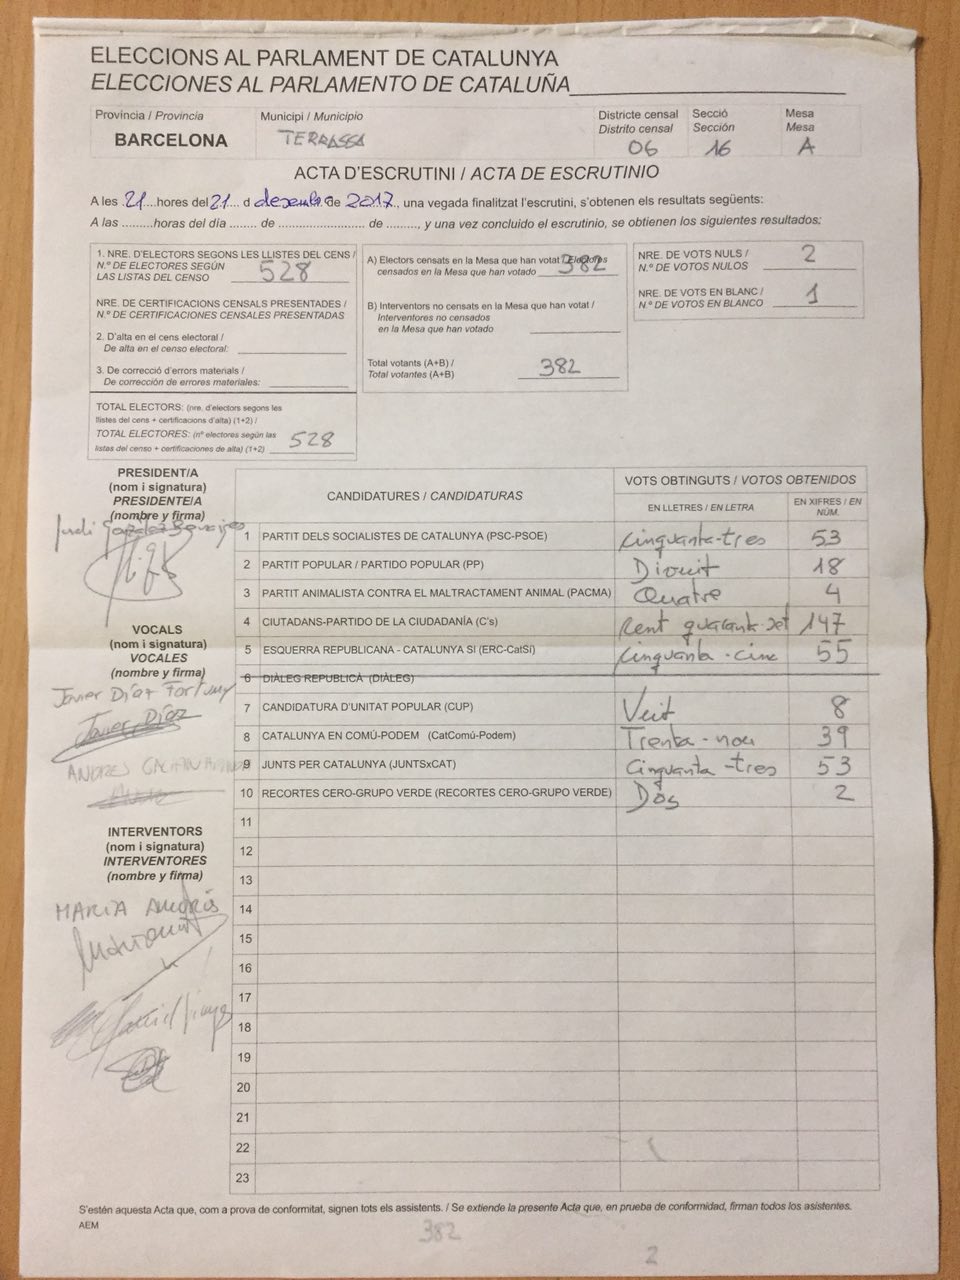 ELECCIONS AL PARLAMENT DE CATALUNYA
ELECCIONES AL PARLAMENTO DE CATALUÑA
Província / Provincia
BARCELONA
Municipi / Municipio
TERRASSA
Districte censal
Distrito censal
06
Secció
Sección
16
Mesa
Mesa
A
ACTA D'ESCRUTINI / ACTA DE ESCRUTINIO
A les .21....hores del 21.. d desembre de 2017.., una vegada finalitzat l'escrutini, s'obtenen els resultats següents:
A las .........horas del día ........ de ............................ de ........., y una vez concluido el escrutinio, se obtienen los siguientes resultados:
1. NRE. D'ELECTORS SEGONS LES LLISTES DEL CENS /
N.º DE ELECTORES SEGÚN
LAS LISTAS DEL CENSO 528
NRE. DE CERTIFICACIONS CENSALS PRESENTADES /
N.º DE CERTIFICACIONES CENSALES PRESENTADAS
2. D'alta en el cens electoral /
De alta en el censo electoral:
3. De correcció d'errors materials /
De corrección de errores materiales:
TOTAL ELECTORS: (nre. d'electors segons les
llistes del cens + certificacions d'alta) (1+2) /
TOTAL ELECTORES: (nº electores según las
listas del censo + certificaciones de alta) (1+2) 528
A) Electors censats en la Mesa que han votat / Electores
censados en la Mesa que han votado 382
B) Interventors no censats en la Mesa que han votat /
Interventores no censados
en la Mesa que han votado
Total votants (A+B) /
Total votantes (A+B) 382
NRE. DE VOTS NULS /
N.º DE VOTOS NULOS 2
NRE. DE VOTS EN BLANC /
N.º DE VOTOS EN BLANCO 1
PRESIDENT/A
(nom i signatura)
PRESIDENTE/A
(nombre y firma)
Jordi González
VOCALS
(nom i signatura)
VOCALES
(nombre y firma)
Javier Díaz Fortuny
Javier Díaz
ANDRES
INTERVENTORS
(nom i signatura)
INTERVENTORES
(nombre y firma)
MARIA
CANDIDATURES / CANDIDATURAS
VOTS OBTINGUTS / VOTOS OBTENIDOS
EN LLETRES / EN LETRA
EN XIFRES / EN NÚM.
1 PARTIT DELS SOCIALISTES DE CATALUNYA (PSC-PSOE) Cinquanta-tres 53
2 PARTIT POPULAR / PARTIDO POPULAR (PP) Diouit 18
3 PARTIT ANIMALISTA CONTRA EL MALTRACTAMENT ANIMAL (PACMA) Quatre 4
4 CIUTADANS-PARTIDO DE LA CIUDADANÍA (C's) quaranta-set 147
5 ESQUERRA REPUBLICANA - CATALUNYA SI (ERC-CatSí) Cinquanta-cinc 55
6 DIÀLEG REPUBLICÀ (DIÀLEG)
7 CANDIDATURA D'UNITAT POPULAR (CUP) Vuit 8
8 CATALUNYA EN COMÚ-PODEM (CatComú-Podem) Trenta-nou 39
9 JUNTS PER CATALUNYA (JUNTSxCAT) Cinquanta-tres 53
10 RECORTES CERO-GRUPO VERDE (RECORTES CERO-GRUPO VERDE) Dos 2
11
12
13
14
15
16
17
18
19
20
21
22
23
S'estén aquesta Acta que, com a prova de conformitat, signen tots els assistents. / Se extiende la presente Acta que, en prueba de conformidad, firman todos los asistentes.
AEM
382
2